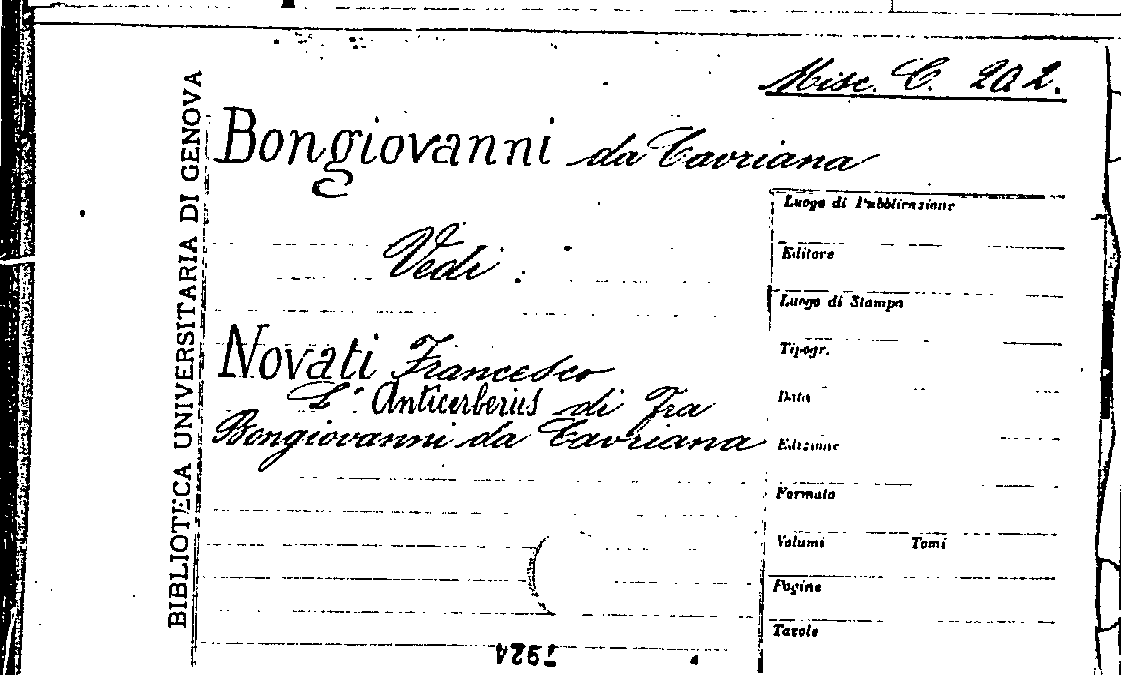 Misc. C. 20. 2.
Bongiovanni da Cavriana
Vedi :
Novati Francesco
L' Anticerberus di Fra
Bongiovanni da Cavriana
BIBLIOTECA UNIVERSITARIA DI GENOVA
Luogo di Pubblicazione
Editore
Luogo di Stampa
Tipogr.
Data
Edizione
Formato
Volumi Tomi
Pagine
Tavole
7924